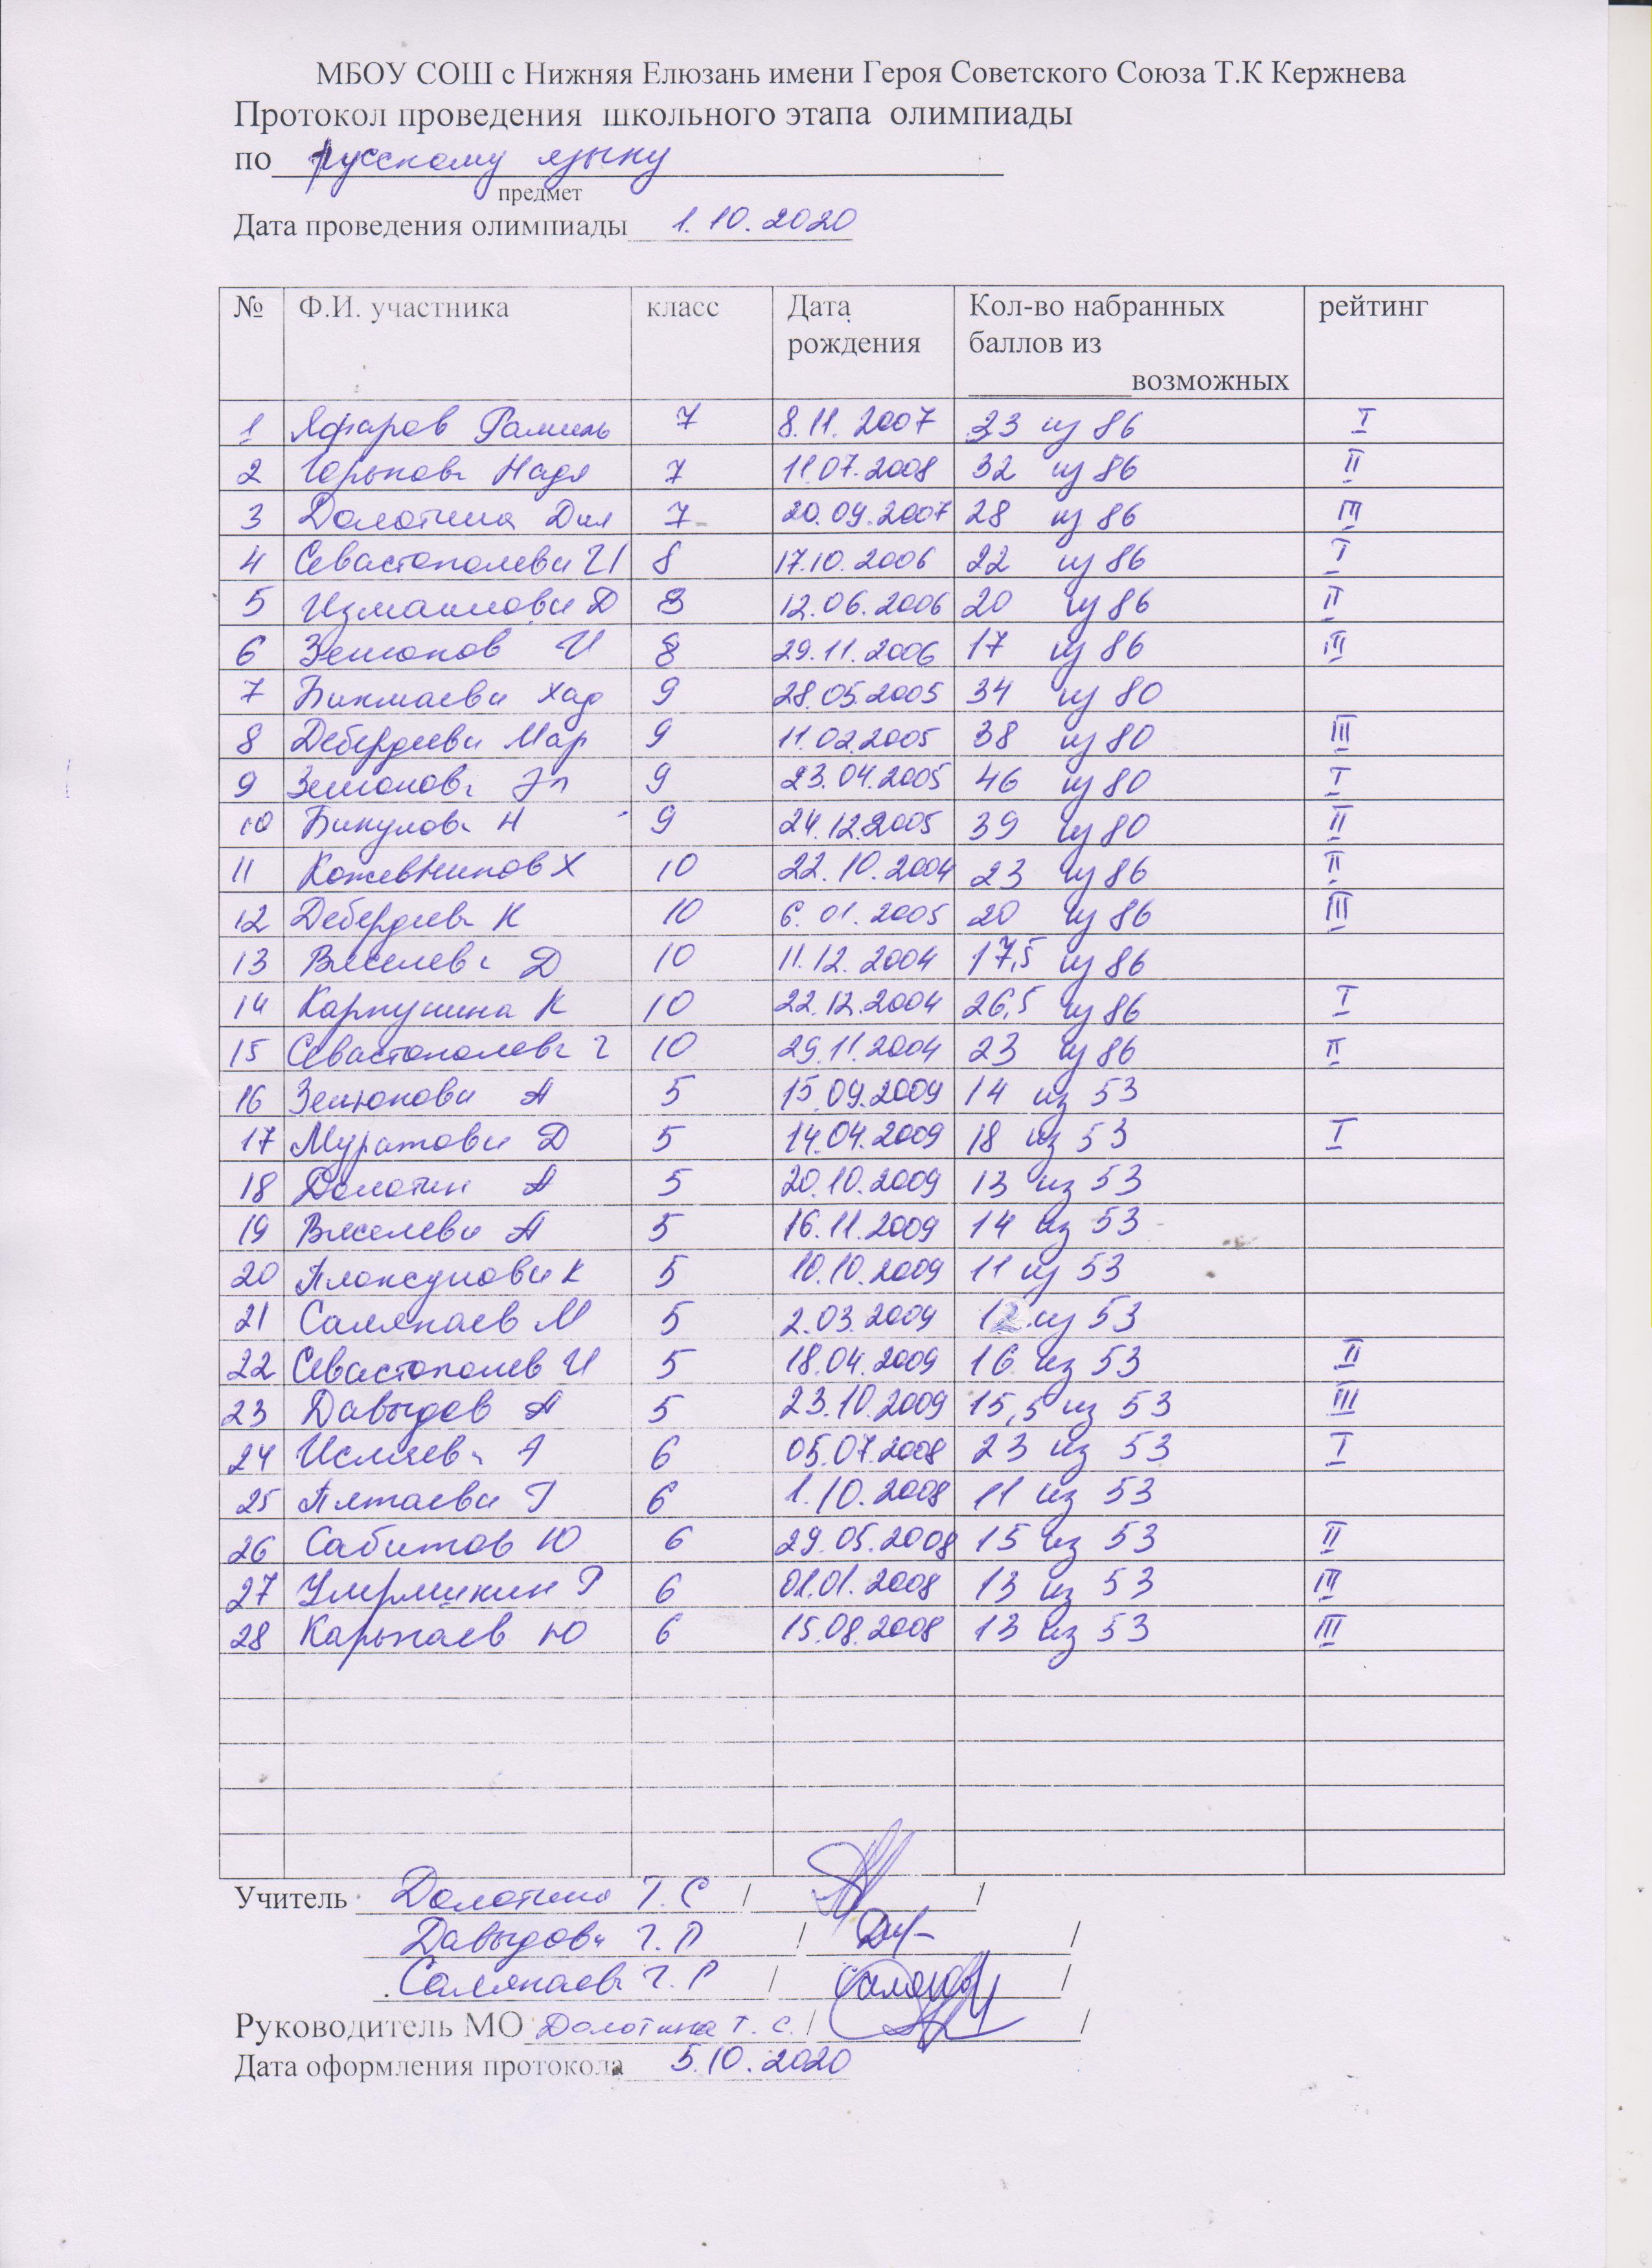 МБОУ СОШ с Нижняя Елюзань имени Героя Советского Союза Т.К Кержнева
Протокол проведения школьного этапа олимпиады
по русскому языку
предмет
Дата проведения олимпиады 1.10.2020
№ Ф.И. участника класс Дата рождения Кол-во набранных баллов из ____ возможных рейтинг
1 Яфаров Рамиль 7 8.11.2007 23 из 86 I
2 Горькова Надя 7 11.07.2008 32 из 86 II
3 Долотина Дил 7 20.09.2007 28 из 86 III
4 Севастополева Г 8 17.10.2006 22 из 86 I
5 Измаилова Д 8 12.06.2006 20 из 86 II
6 Зетюков И 8 29.11.2006 17 из 86 III
7 Бикмаева Хад 9 28.05.2005 34 из 80
8 Дебердеева Мар 9 11.02.2005 38 из 80 III
9 Зетюкова Эл 9 23.04.2005 46 из 80 I
10 Бикулова Н 9 24.12.2005 39 из 80 II
11 Кожевников Х 10 22.10.2004 23 из 86 II
12 Дебердеева К 10 6.01.2005 20 из 86 III
13 Вяселева Д 10 11.12.2004 17,5 из 86
14 Карпушина К 10 22.12.2004 26,5 из 86 I
15 Севастополева Г 10 29.11.2004 23 из 86 II
16 Зетюкова А 5 15.09.2009 14 из 53
17 Муратова Д 5 14.04.2009 18 из 53 I
18 Долотин А 5 20.10.2009 13 из 53
19 Вяселева А 5 16.11.2009 14 из 53
20 К 5 10.10.2009 11 из 53
21 Саляпаев М 5 2.03.2009 12 из 53
22 Севастополев И 5 18.04.2009 16 из 53 II
23 Давыдов А 5 23.10.2009 15,5 из 53 III
24 Исляева А 6 05.07.2008 23 из 53 I
25 Алтаева Г 6 1.10.2008 11 из 53
26 Сабитов Ю 6 29.05.2008 15 из 53 II
27 Р 6 01.01.2008 13 из 53 III
28 Карьпаев Ю 6 15.08.2008 13 из 53 III
Учитель Долотина Т.С / /
Давыдова Г.Р / /
Саляпаева Г.Р / /
Руководитель МО Долотина Т.С. / /
Дата оформления протокола 5.10.2020